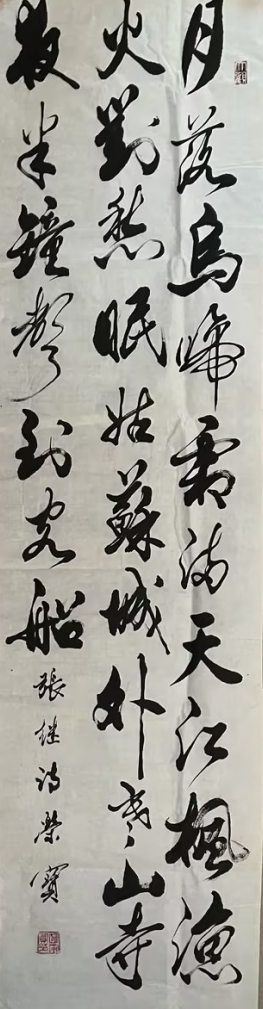 月落烏啼霜满天江楓漁
火對愁眠姑蘇城外寒山寺
夜半鐘聲到客船
張继诗榮寶